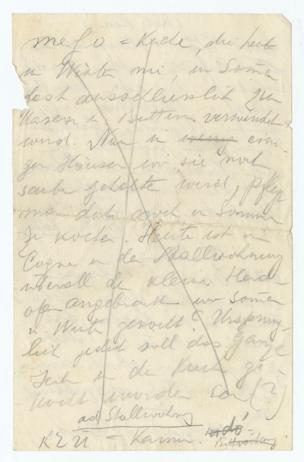 mego = Küche, die heute
im Winter nie, im Sommer
fast ausschliesslich zum
Käsen u. Buttern verwendet
wird. Nur in eini-
gen Häusern wo sie noch
sauber gehalten wird, pflegt
man dort noch im Sommer
zu kochen. Heute ist in
Cogne in der Stallwohnung
überall der kleine Herd
angebracht wo Sommer
u. Winter gekocht. Ursprüng-
lich jedoch soll das ganze
Jahr in der Küche ge-
kocht worden sein (?)
ad Stallwohng